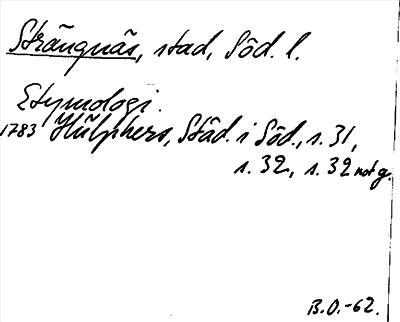 Strängnäs, stad, Söd. l.
Etymologi.
1783 Hülphers, Städ. i Söd., s. 31,
s. 32, s. 32 not g.
B.O.-62.